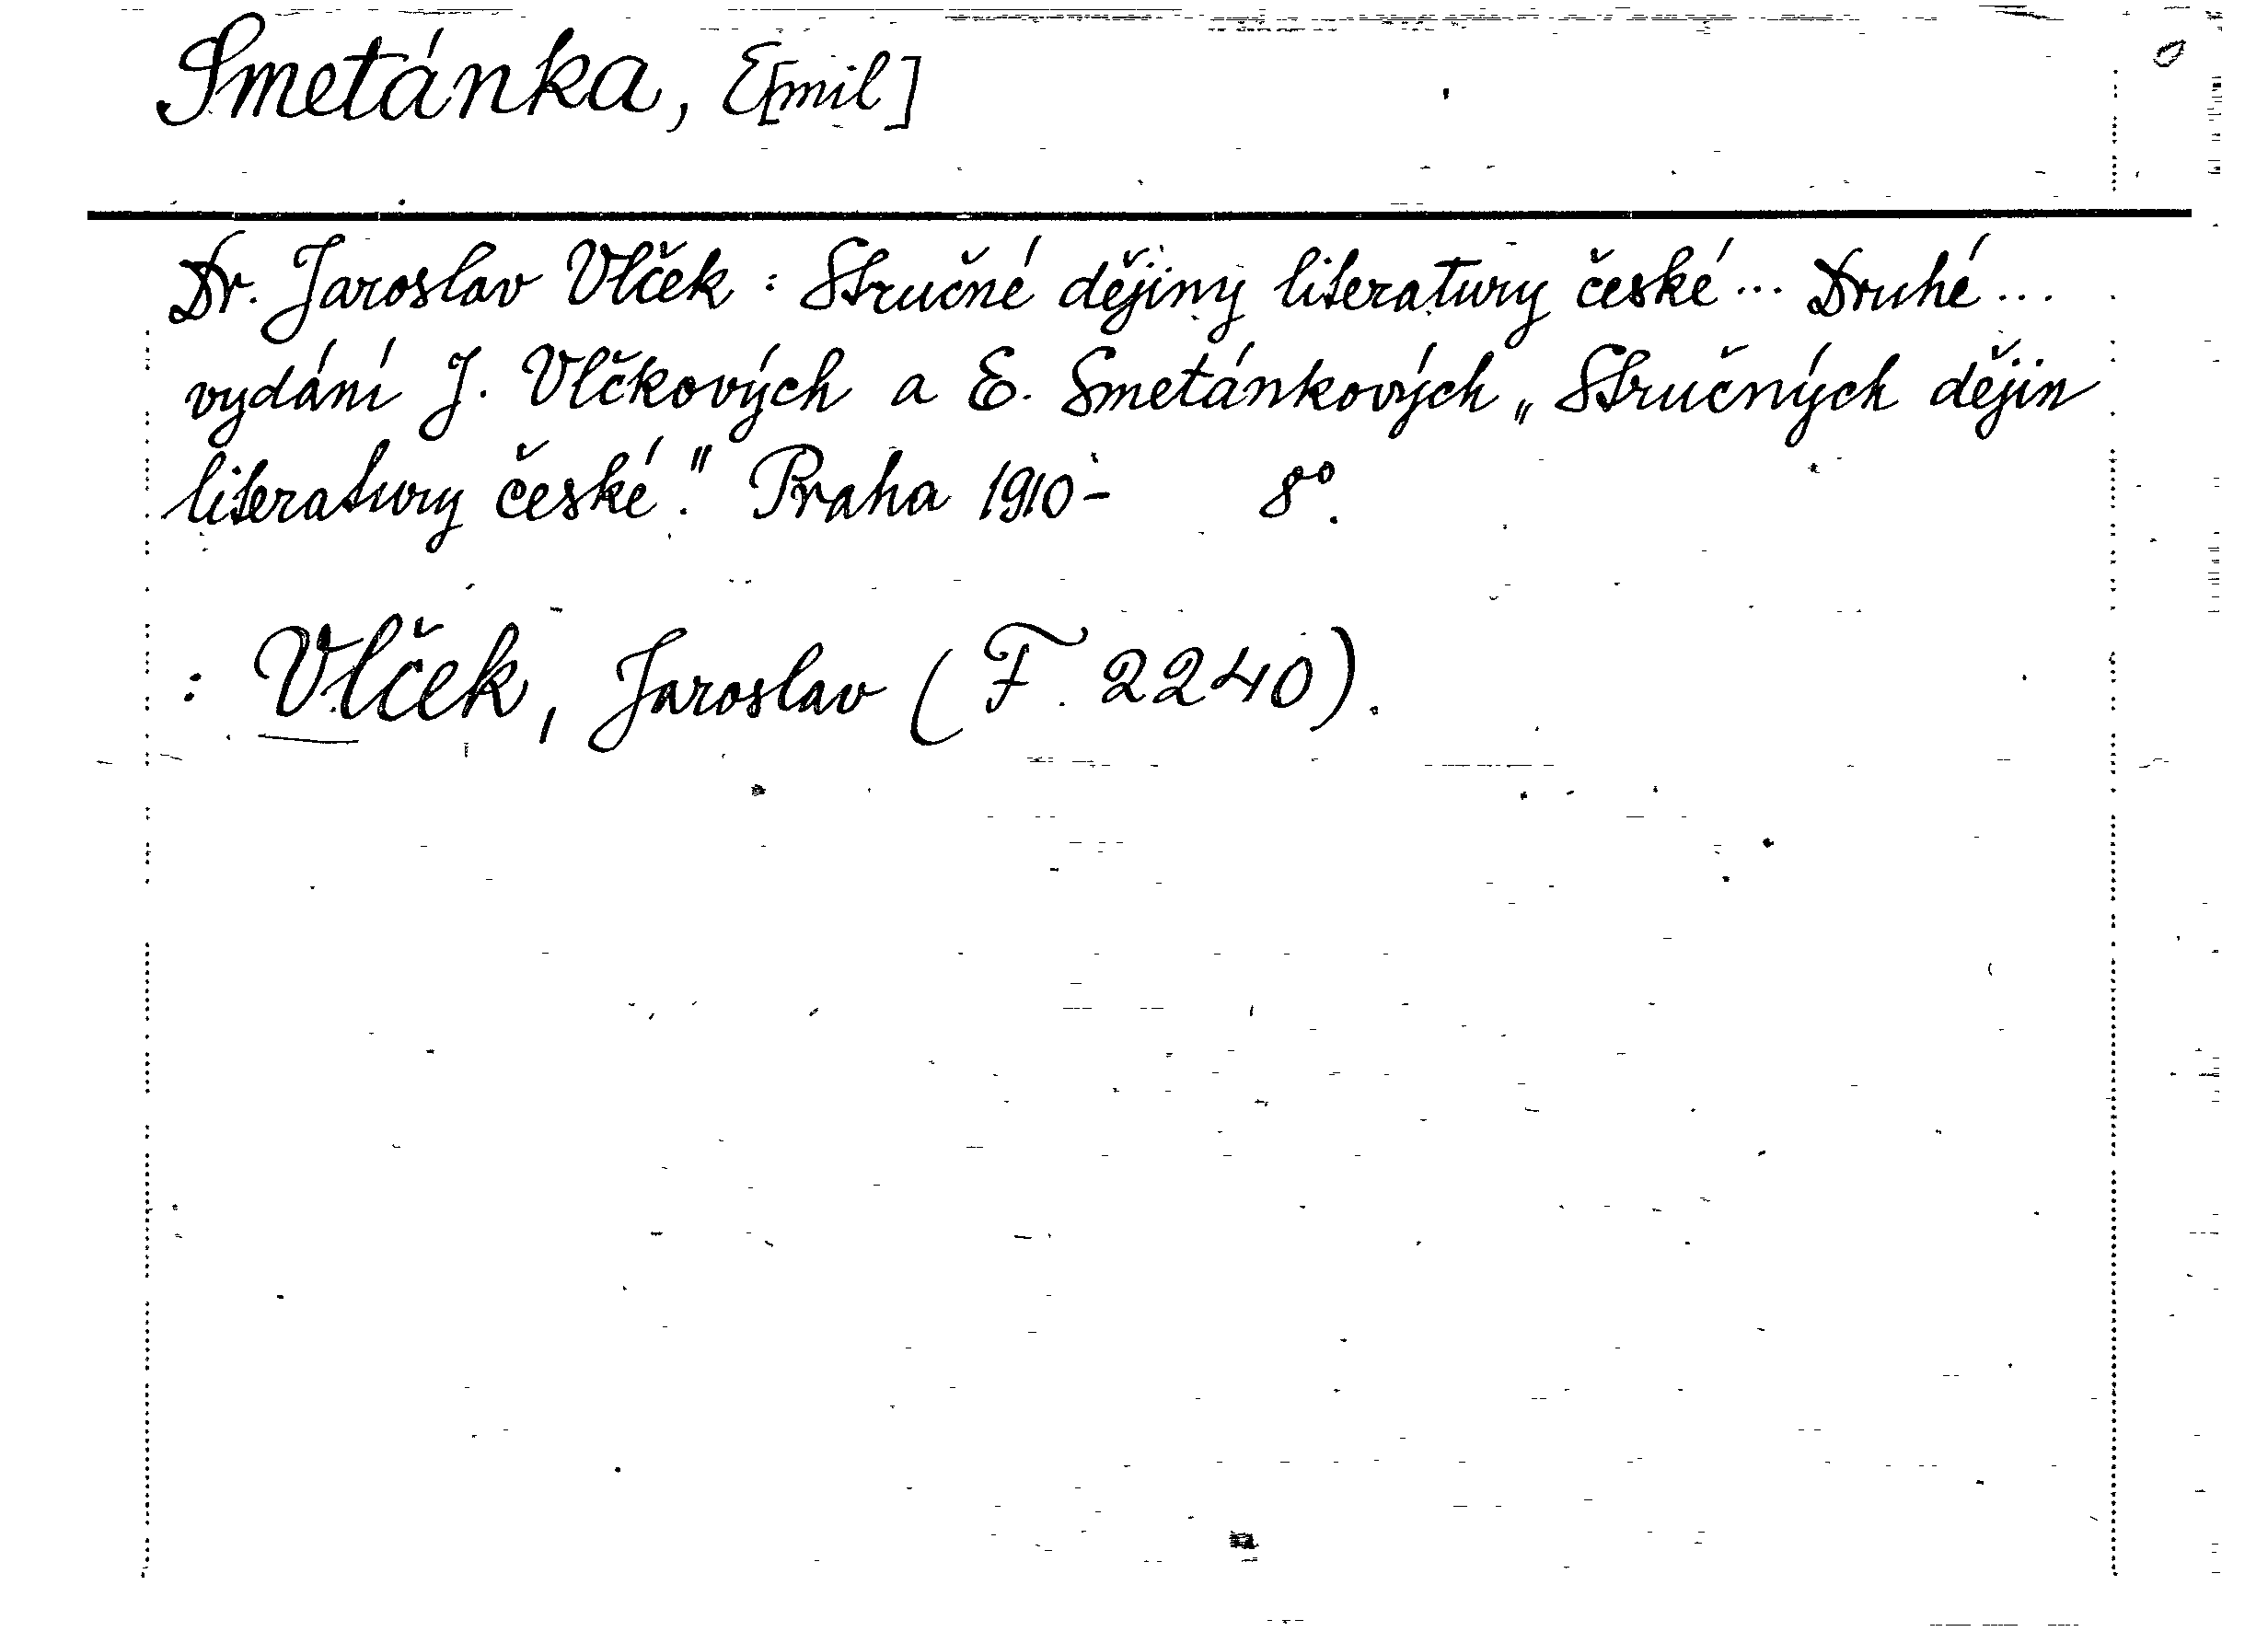 Smetánka, E[mil]
Dr. Jaroslav Vlček : Stručné dějiny literatury české... Druhé...
vydání J. Vlčkových a E. Smetánkových „Stručných dějin
literatury české." Praha 1910- 8°.
: Vlček, Jaroslav (F. 2240).